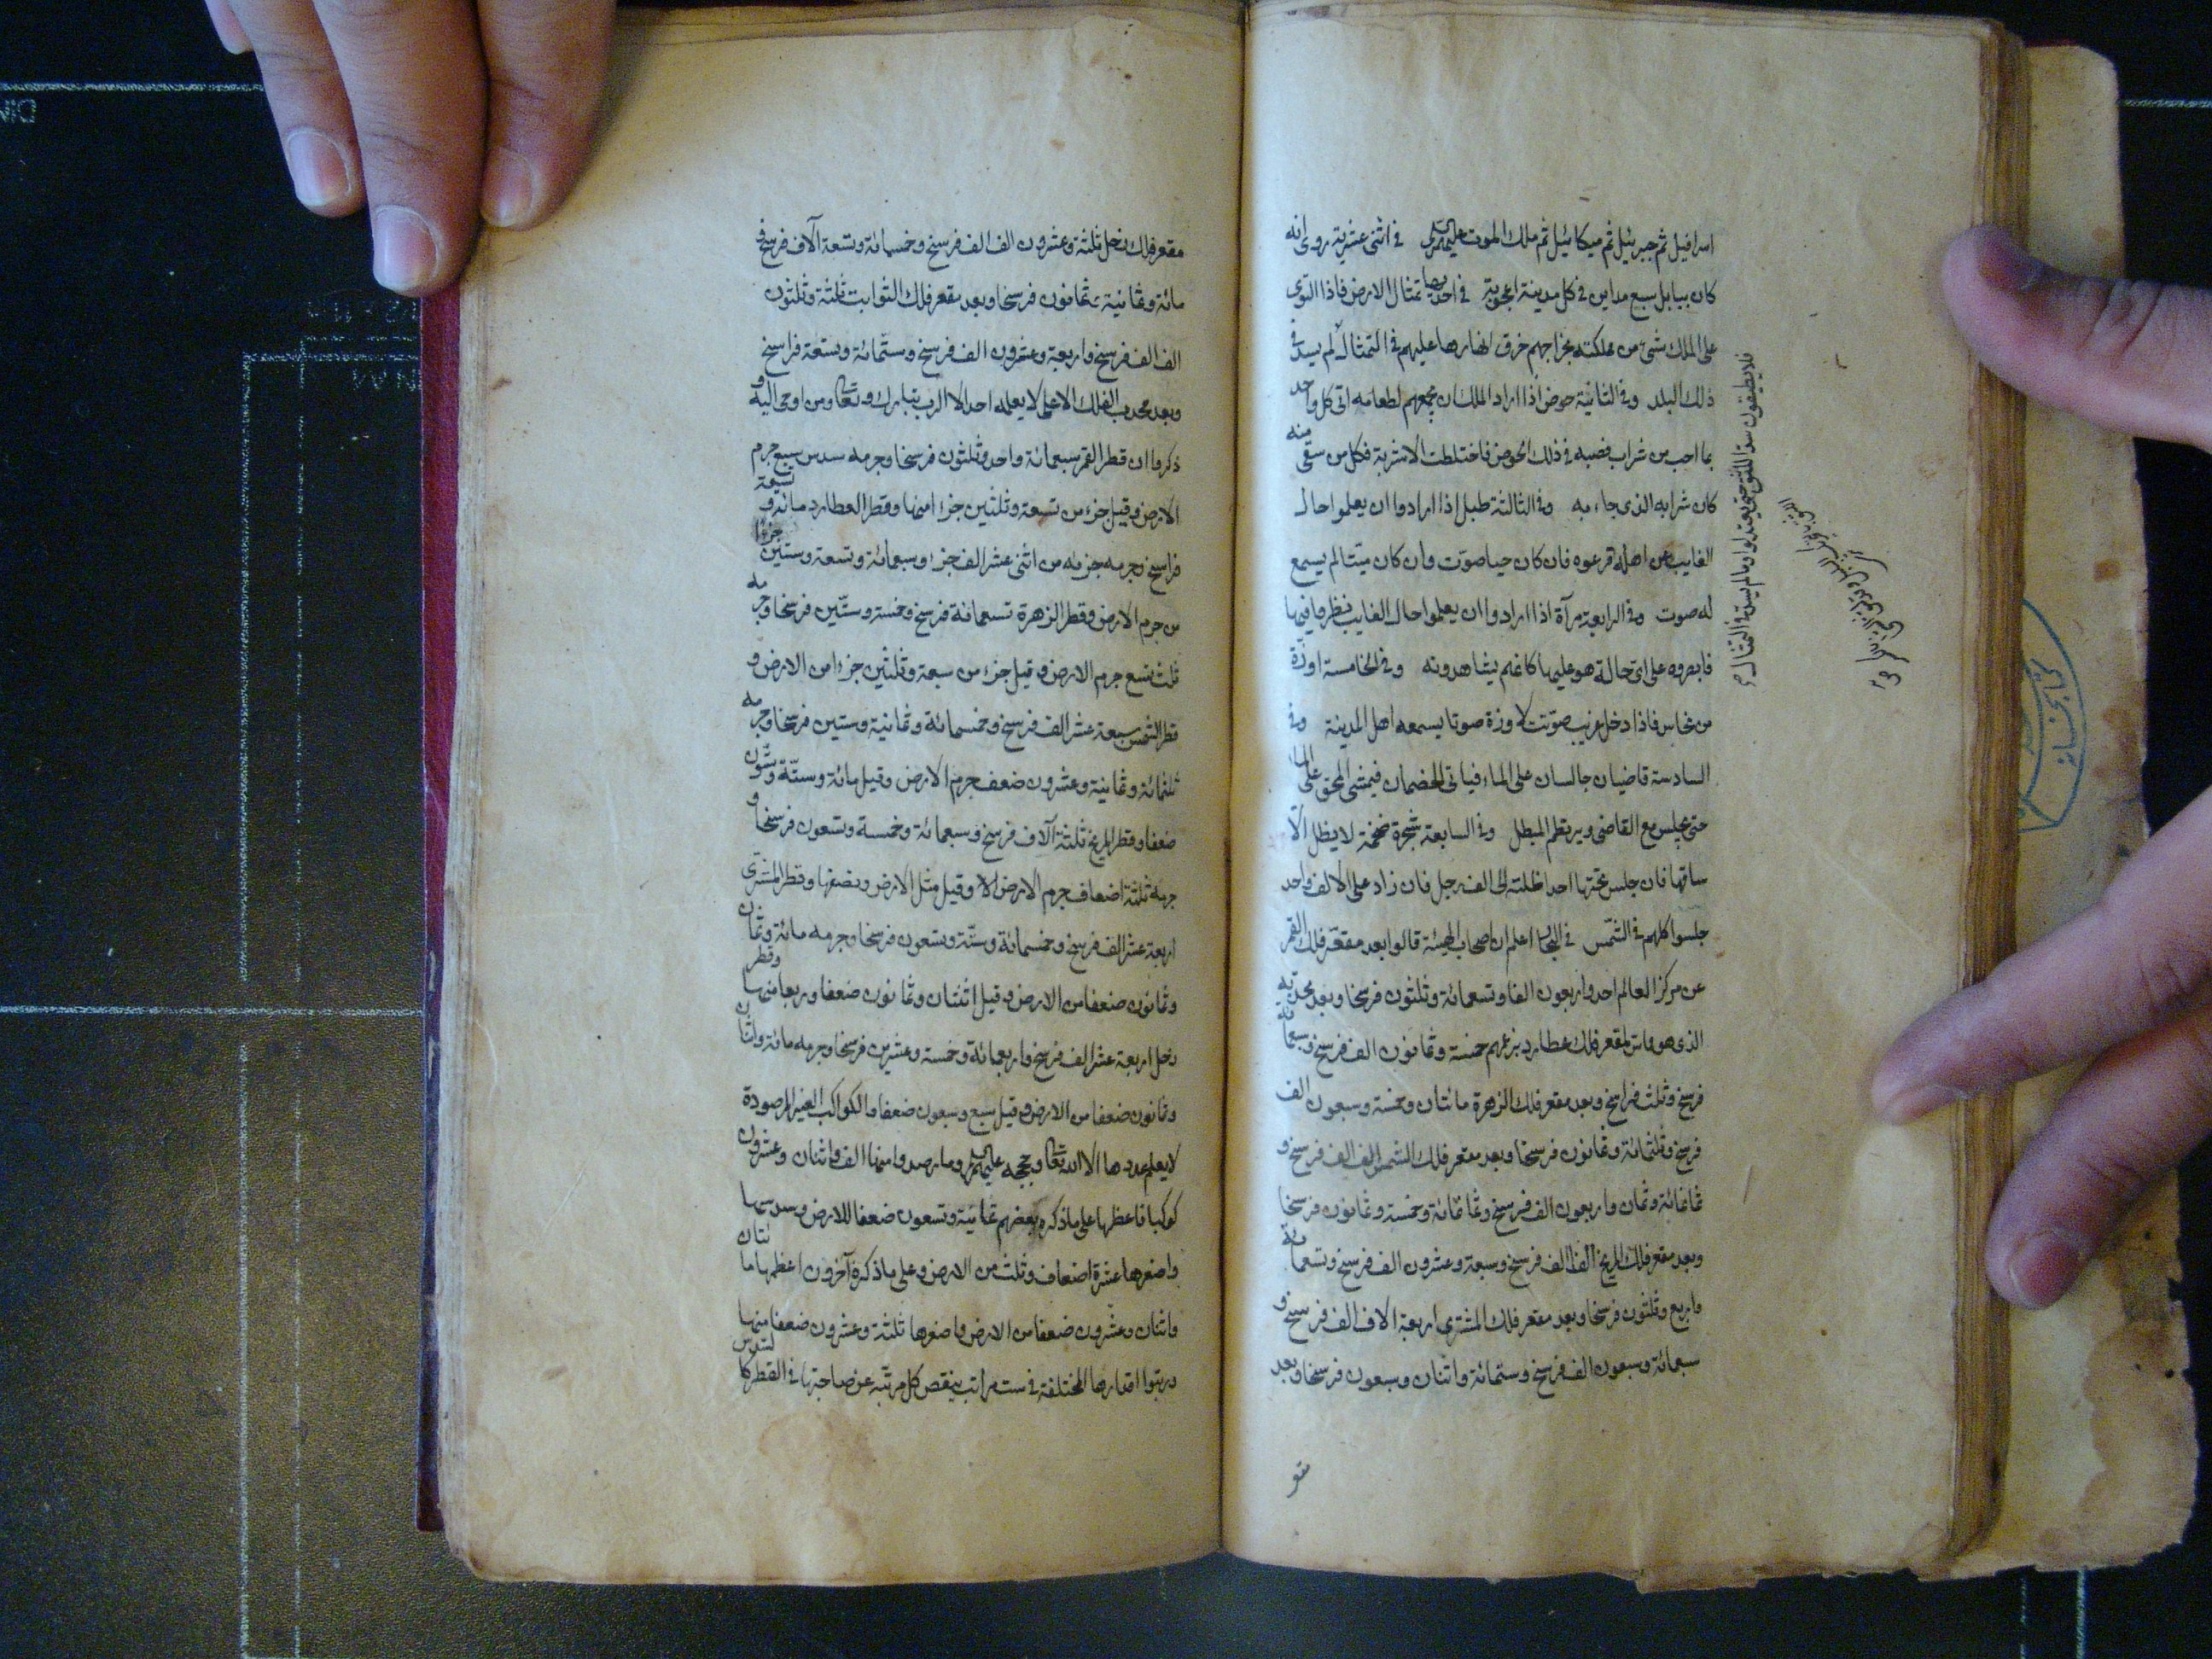 اسرافيل ثم جبرئيل ثم ميكائيل ثم ملك الموت عليهم السلام في اثنى عشرية روى انه
كان ببابل سبع مداين في كل مدينة اعجوبة في احديها تمثال الارض فاذا التوى
على الملك شئ من مملكته بخراجهم خرق انهارها عليهم في التمثال لم يسد في
ذلك البلد وفي الثانية حوض اذا اراد الملك ان يجمعهم لطعامه اتى كل واحد
بما احب من شراب فصبه في ذلك الحوض فاختلطت الاشربة فكل من سقى منه
كان شرابه الذي جاء به وفي الثالثة طبل اذا ارادوا ان يعلموا حال
الغايب عن اهله قرعوه فان كان حيا صوت وان كان ميتا لم يسمع
له صوت وفي الرابعة مرآة اذا ارادوا ان يعلموا حال الغايب نظروا فيها
فابصروه على اى حالة هو عليها كانهم يشاهدونه وفي الخامسة اوزة
من نحاس فاذا دخل غريب صوتت الاوزة صوتا يسمعه اهل المدينة وفي
السادسة قاضيان جالسان على الماء فياتى الخصمان فيمشى المحق على الماء
حتى يجلس مع القاضى ويرتطم المبطل وفي السابعة شجرة ضخمة لا يظل الا
ساقها فان جلس تحتها احد اظلته الى الف رجل فان زاد على الالف واحد
جلسوا كلهم في الشمس في البحار اعلم ان اصحاب الهيئة قالوا بعد مقعر فلك القمر
عن مركز العالم احد واربعون الفا وتسعمائة وثلثون فرسخا وبعد محدبه
الذى هو مماس لمقعر فلك عطارد بزعمهم خمسة وثمانون الف فرسخ وسبعمائة
فرسخ وثلث فراسخ وبعد مقعر فلك الزهرة مائتان وخمسة وسبعون الف
فرسخ وثلثمائة وثمانون فرسخا وبعد مقعر فلك الشمس الف الف فرسخ و
ثمانمائة وثمان واربعون الف فرسخ وثمانمائة وخمسة وثمانون فرسخا
وبعد مقعر فلك المريخ الف الف فرسخ وسبعة وعشرون الف فرسخ وتسعمائة
واربع وثلثون فرسخا وبعد مقعر فلك المشترى اربعة الاف الف فرسخ و
سبعمائة وسبعون الف فرسخ وستمائة واثنان وسبعون فرسخا وبعد
مقعر
فلا يطيقون سد البثق حتى يعتدلوا وما لم يسد في التمثال
مقعر فلك زحل ثلثة وعشرون الف الف فرسخ وخمسمائة وتسعة آلاف فرسخ و
مائة وثمانية وثمانون فرسخا وبعد مقعر فلك الثوابت ثلثة وثلثون
الف الف فرسخ واربعة وعشرون الف فرسخ وستمائة وتسعة فراسخ
وبعد محدب الفلك الاعلى لا يعلمه احد الا الرب تبارك وتعالى ومن اوحى اليه و
ذكروا ان قطر القمر سبعمائة واحد وثلثون فرسخا وجرمه سدس سبع جرم
الارض وقيل جزء من تسعة وثلثين جزءا منها وقطر العطارد مائة و تسعة
فراسخ وجرمه جزء من اثنى عشر الف جزء وسبعمائة وتسعة وستين جزءا
من جرم الارض وقطر الزهرة تسعمائة فرسخ وخمسة وستين فرسخا وجرمه
ثلث تسع جرم الارض وقيل جزء من سبعة وثلثين جزءا من الارض و
قطر الشمس سبعة عشر الف فرسخ وخمسمائة وثمانية وستين فرسخا وجرمه
ثلثمائة وثمانية وعشرون ضعف جرم الارض وقيل مائة وستة وستون
ضعفا وقطر المريخ ثلثة آلاف فرسخ وسبعمائة وخمسة وتسعون فرسخا و
جرمه ثلثة اضعاف جرم الارض الا وقيل مثل الارض ونصفها وقطر المشترى
اربعة عشر الف فرسخ وخمسمائة وستة وتسعون فرسخا وجرمه مائة وثمان
وثمانون ضعفا من الارض وقيل اثنتان وثمانون ضعفا وربعا منها وقطر
زحل اربعة عشر الف فرسخ واربعمائة وخمسة وعشرين فرسخا وجرمه مائة واثنان
وثمانون ضعفا من الارض وقيل سبع وسبعون ضعفا والكواكب الغير المرصودة
لا يعلم عددها الا الله تعالى وحججه عليهم السلام وما رصدوا منها الف واثنان وعشرون
كوكبا فاعظمها على ما ذكره بعضهم ثمانية وتسعون ضعفا للارض وسدسها
واصغرها عشرة اضعاف وثلث من الارض وعلى ما ذكره آخرون اعظمها مائتان
واثنان وعشرون ضعفا من الارض واصغرها ثلثة وعشرون ضعفا منها
ورتبوا اقدارها المختلفة في ست مراتب ينقص كل مرتبة عن صاحبتها في القطر كالسدس